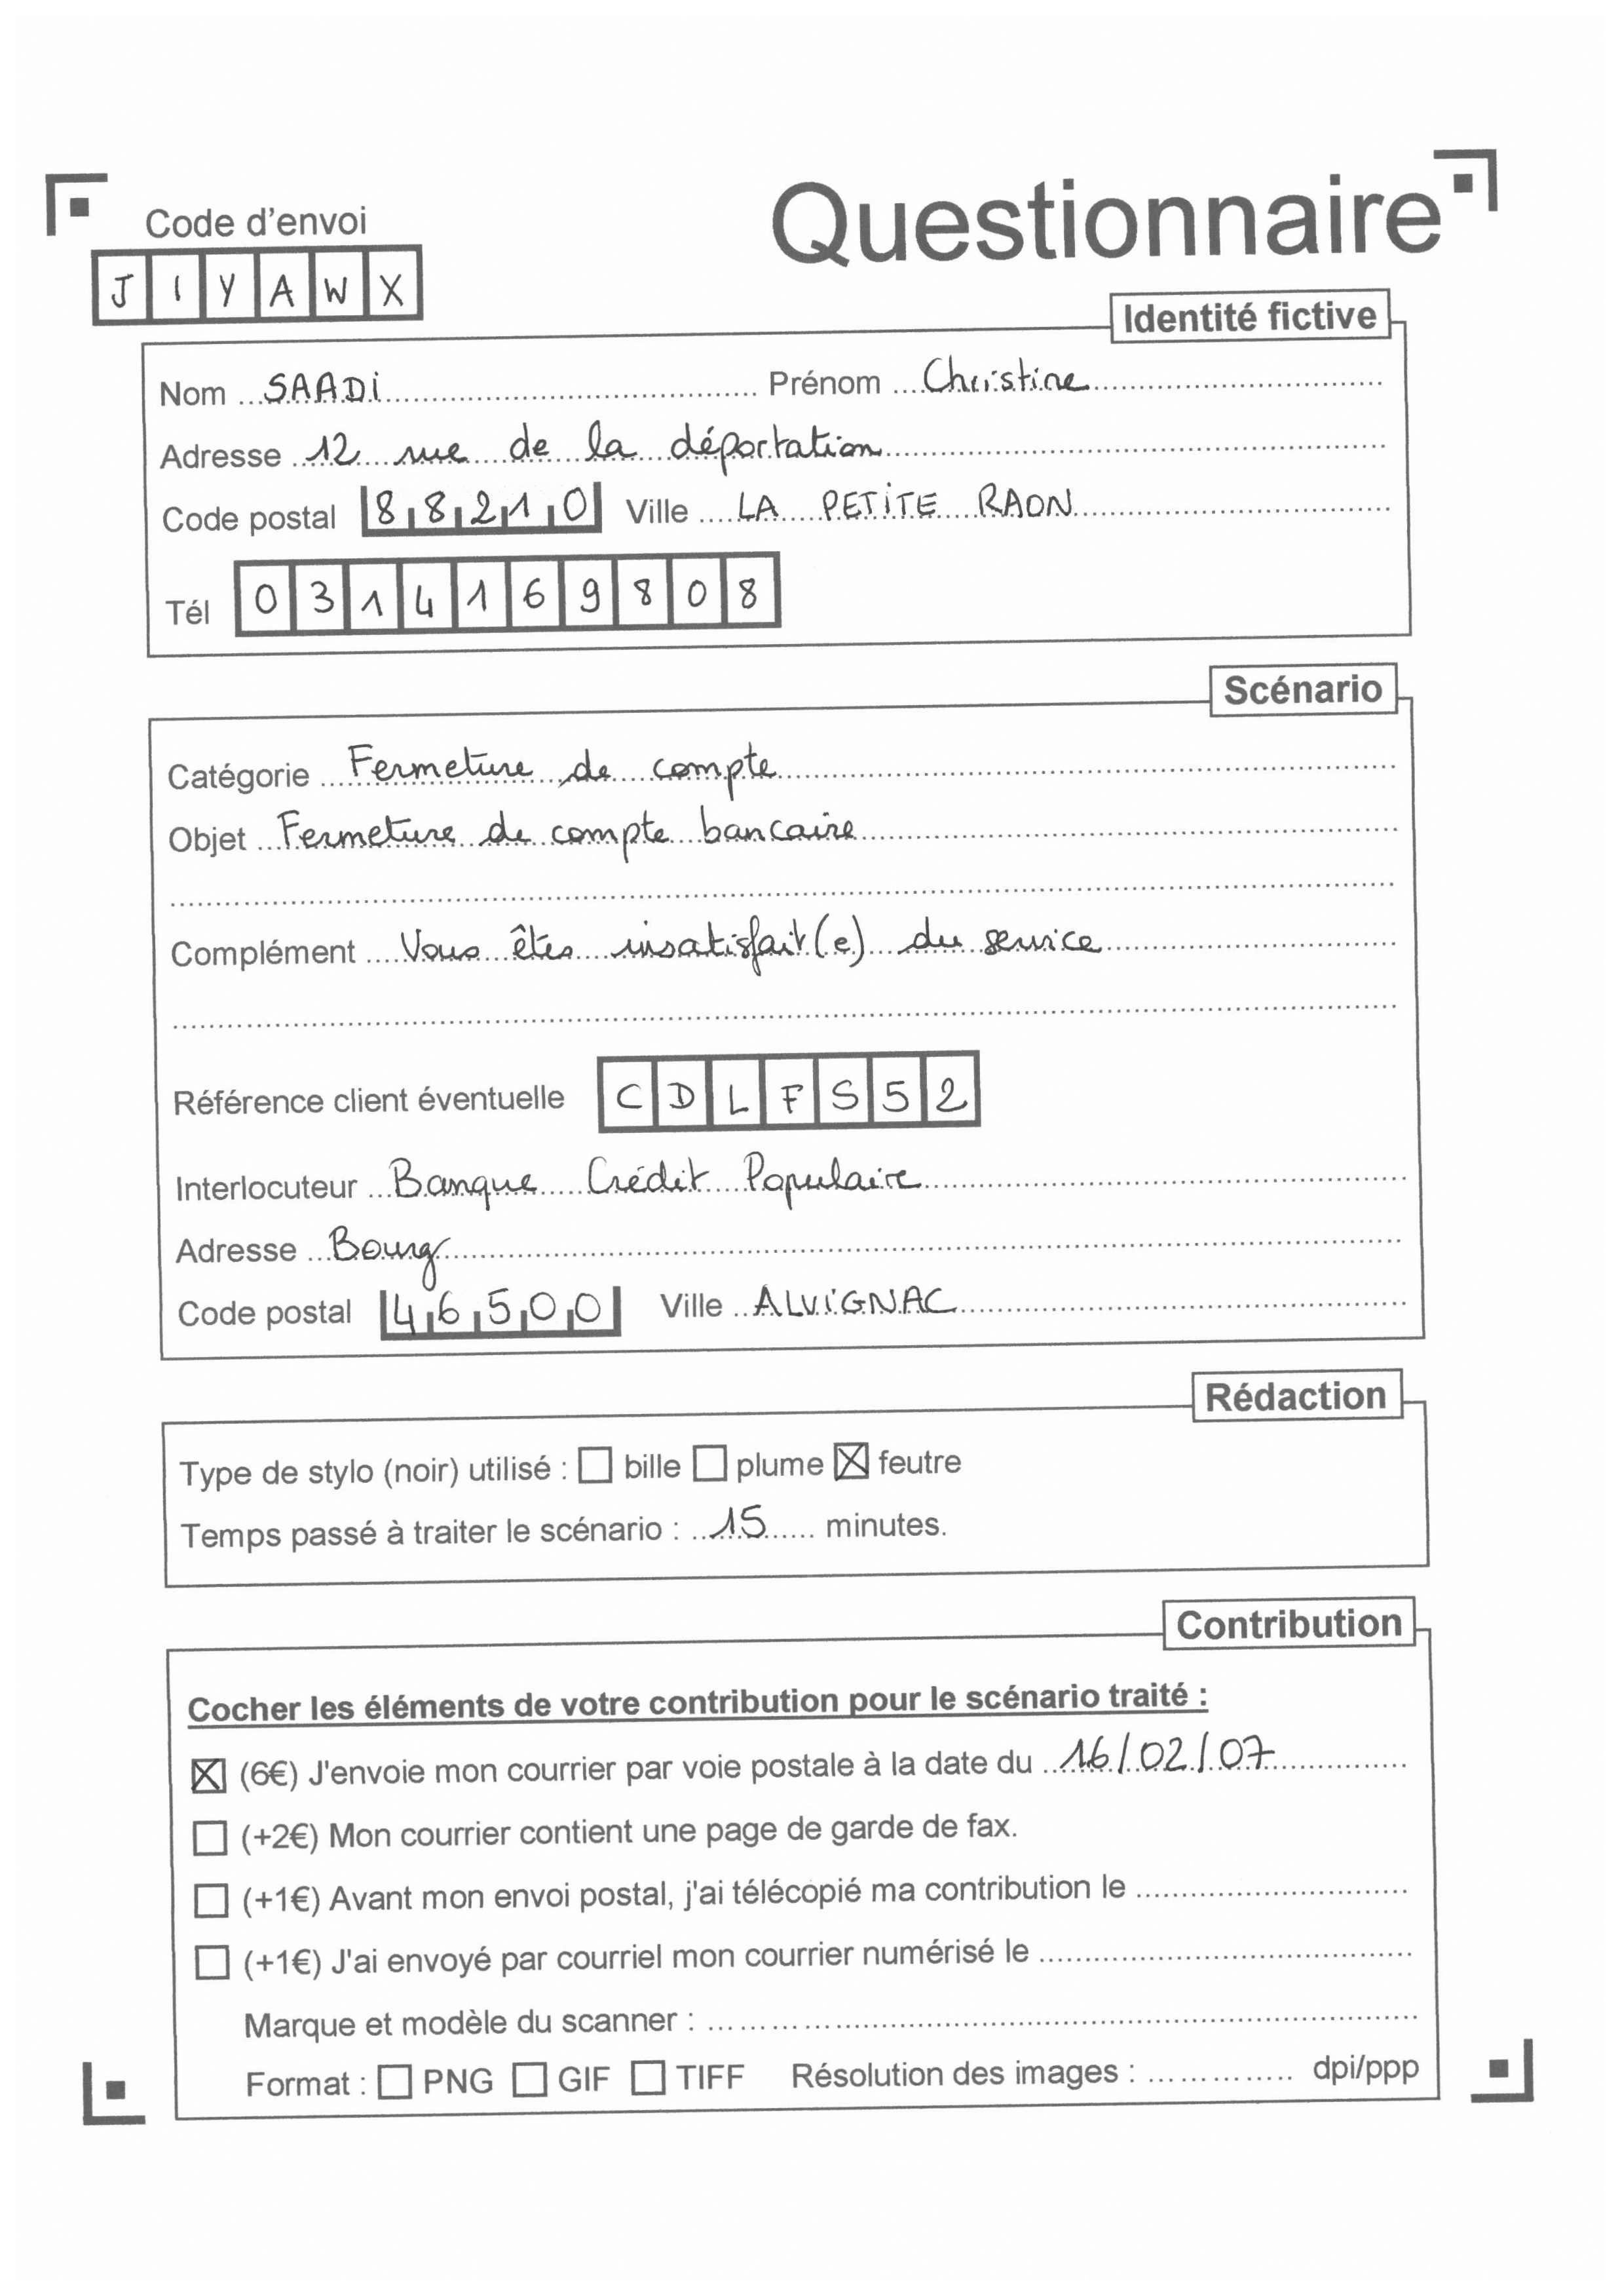 Questionnaire
Code d'envoi
J I Y A W X
Identité fictive
Nom SAADI Prénom Christine
Adresse 12 rue de la déportation
Code postal 88210 Ville LA PETITE RAON
Tél 0314169808
Scénario
Catégorie Fermeture de compte
Objet Fermeture de compte bancaire
Complément Vous êtes insatisfait(e) du service
Référence client éventuelle C D L F S 5 2
Interlocuteur Banque Crédit Populaire
Adresse Bourg
Code postal 46500 Ville ALVIGNAC
Rédaction
Type de stylo (noir) utilisé : ☐ bille ☐ plume ☒ feutre
Temps passé à traiter le scénario : 15 minutes.
Contribution
Cocher les éléments de votre contribution pour le scénario traité :
☒ (6€) J'envoie mon courrier par voie postale à la date du 16/02/07
☐ (+2€) Mon courrier contient une page de garde de fax.
☐ (+1€) Avant mon envoi postal, j'ai télécopié ma contribution le
☐ (+1€) J'ai envoyé par courriel mon courrier numérisé le
Marque et modèle du scanner :
Format : ☐ PNG ☐ GIF ☐ TIFF Résolution des images : dpi/ppp